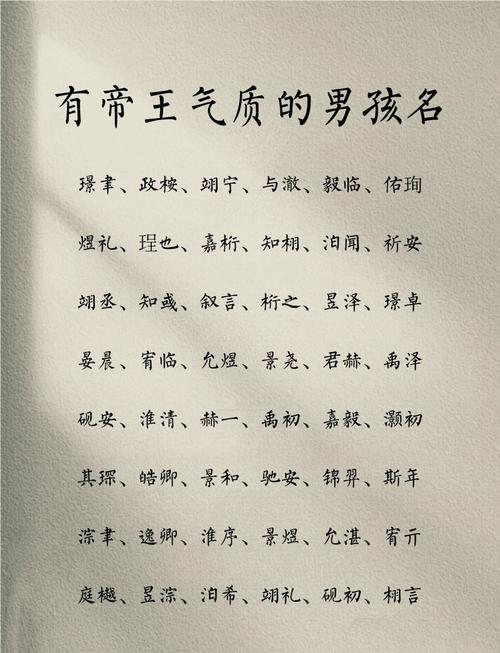 有帝王气质的男孩名
璟聿、政桉、翊宁、与澈、毅临、佑珣
煜礼、珵也、嘉桁、知栩、洎闻、祈安
翊丞、知彧、叙言、桁之、昱泽、璟卓
晏晨、宥临、允煜、景尧、君赫、禹泽
砚安、淮清、赫一、禹初、嘉毅、灏初
其琛、皓卿、景和、驰安、锦羿、斯年
淙聿、逸卿、淮序、景煜、允湛、宥亓
庭樾、昱淙、洎希、翊礼、砚初、栩言